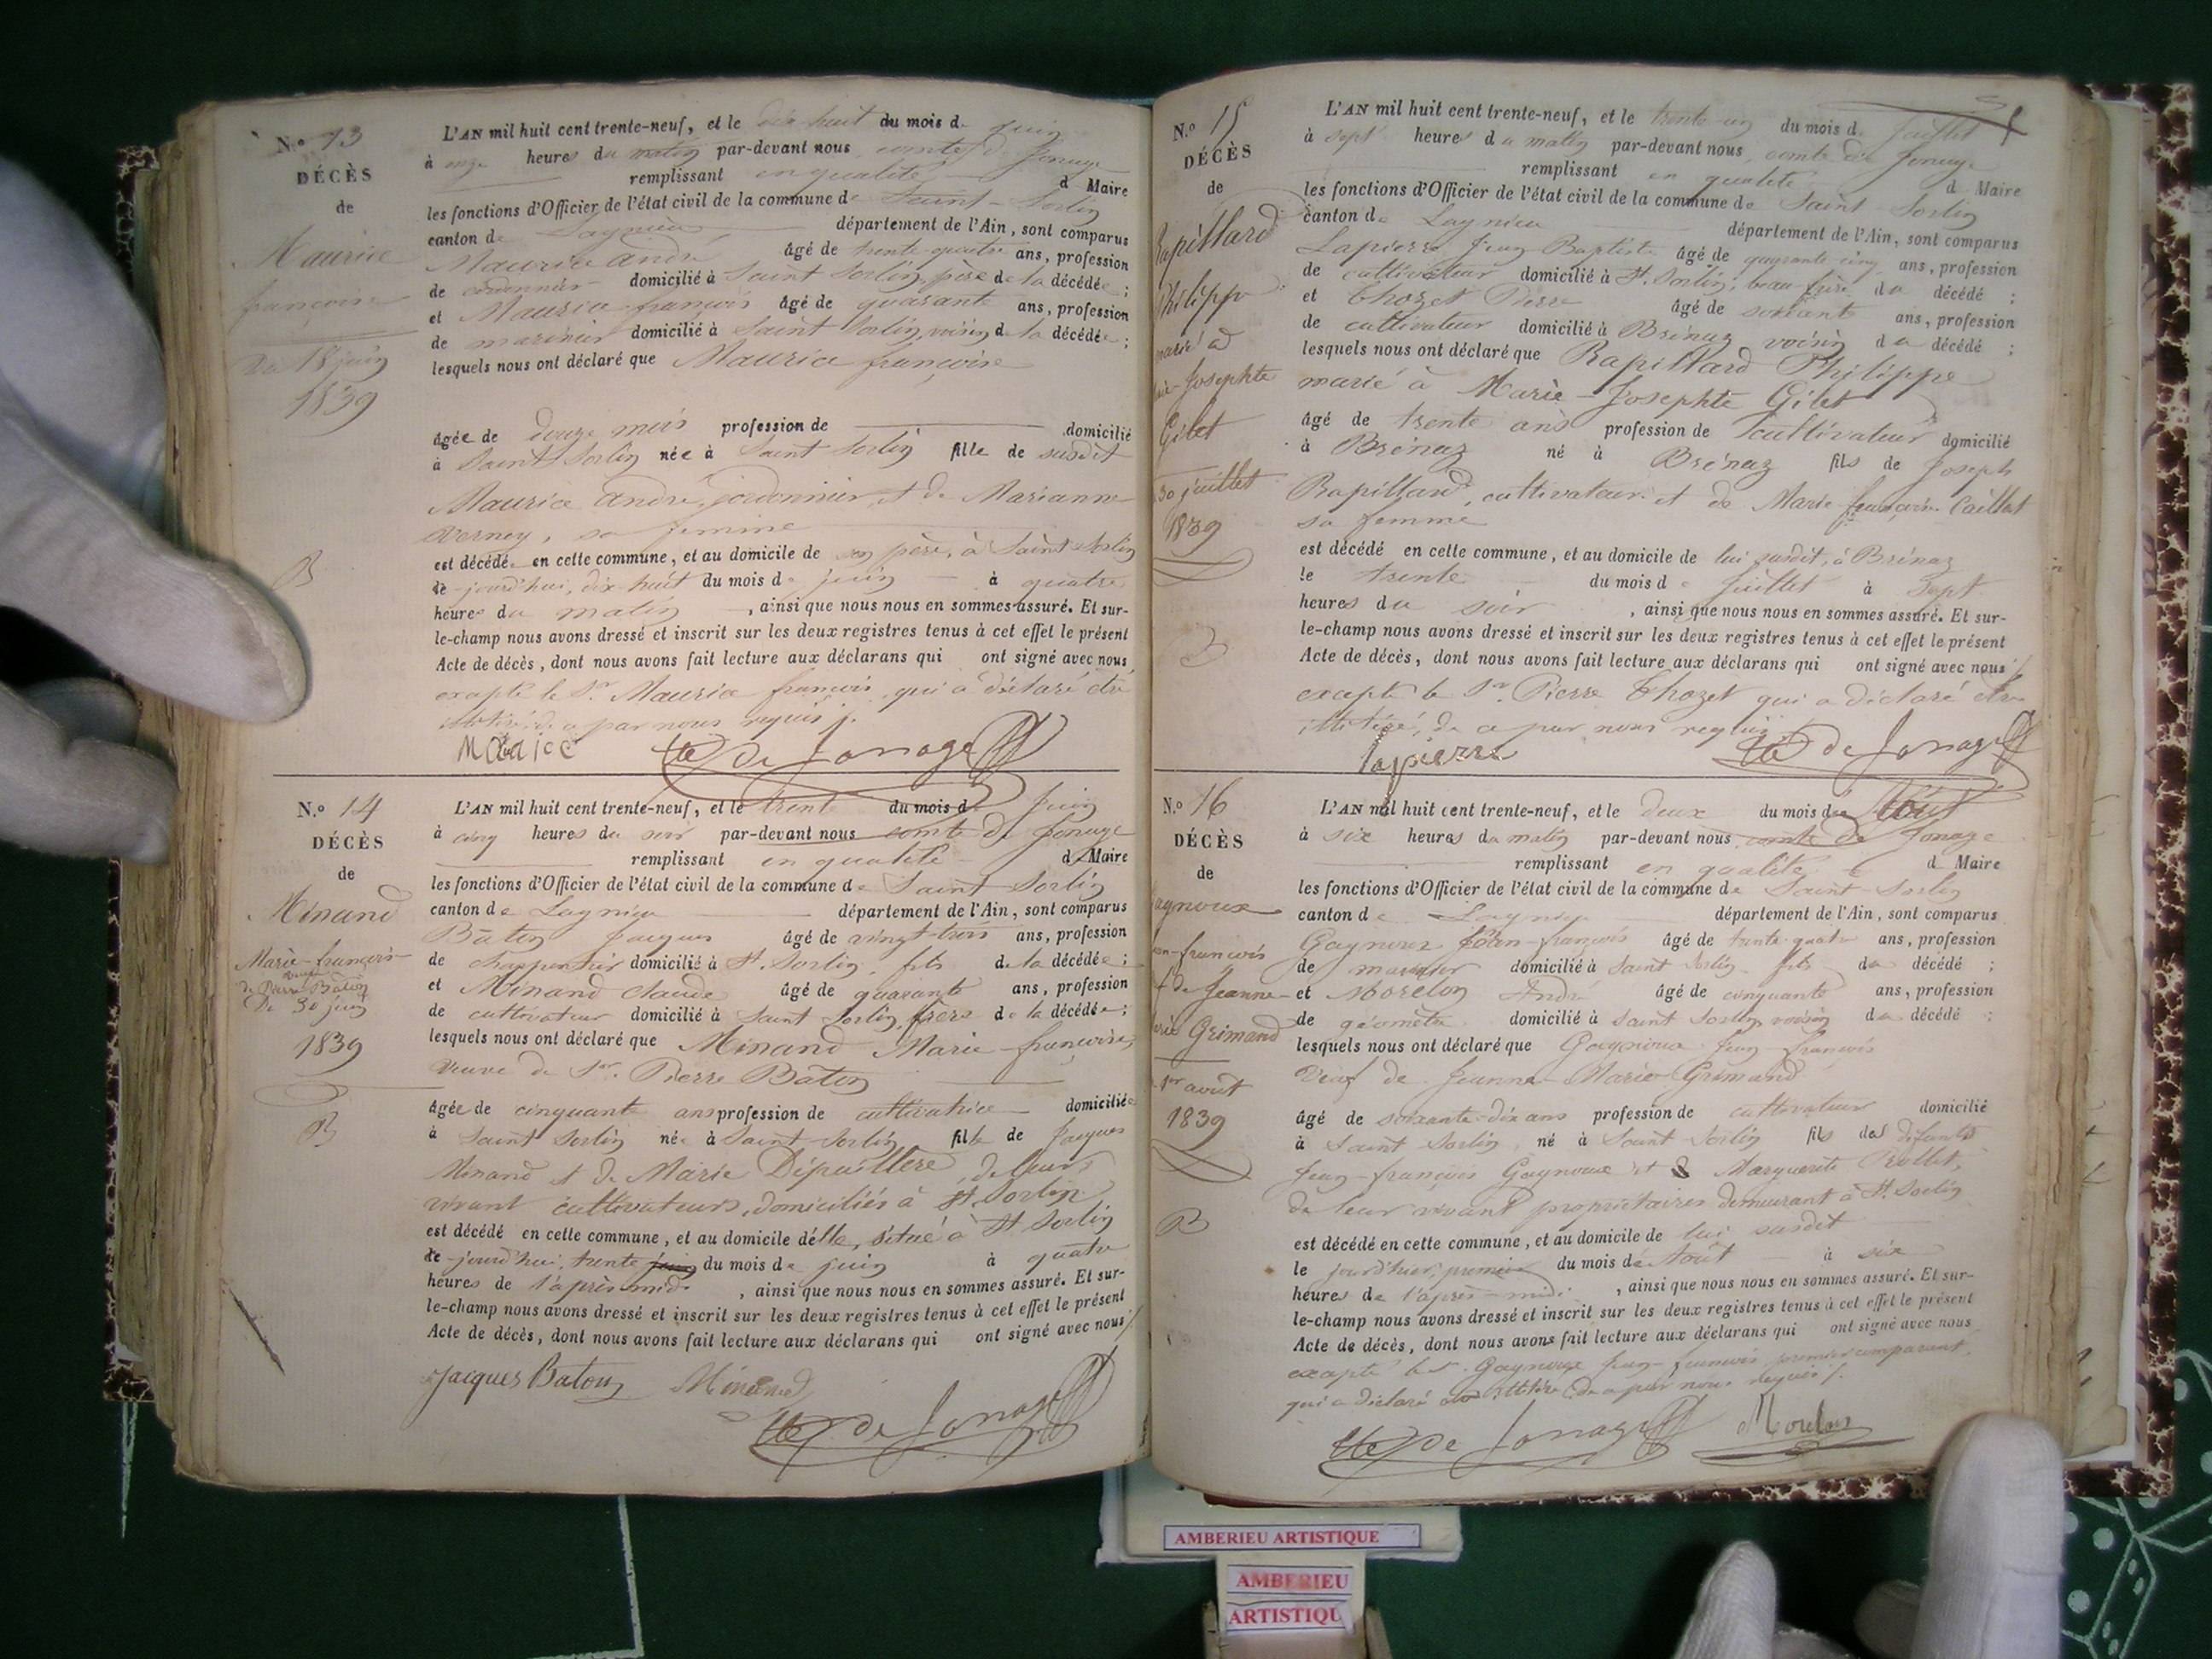 N.° 13
DÉCÈS
de
Maurice
françoise
Du 18 juin
1839
B
L'AN mil huit cent trente-neuf, et le dix huit du mois de juin
à onze heures du matin par-devant nous comte de Jonage
remplissant en qualité d Maire
les fonctions d'Officier de l'état civil de la commune de Saint-Sorlin
canton de Lagnieu département de l'Ain, sont comparus
Maurice André âgé de trente-quatre ans, profession
de cordonnier domicilié à Saint Sorlin, père de la décédée;
et Maurice françois âgé de quarante ans, profession
de marinier domicilié à Saint Sorlin, voisin de la décédée;
lesquels nous ont déclaré que Maurice françoise
âgée de douze mois profession de domicilié
à Saint Sorlin née à Saint Sorlin fille de susdit
Maurice André, cordonnier, et de Marianne
Verney, sa femme
est décédée en cette commune, et au domicile de son père, à Saint-Sorlin
ce jourd'hui, dix-huit du mois de juin à quatre
heures du matin, ainsi que nous nous en sommes assuré. Et sur-
le-champ nous avons dressé et inscrit sur les deux registres tenus à cet effet le présent
Acte de décès, dont nous avons fait lecture aux déclarans qui ont signé avec nous,
excepté le Sr. Maurice françois, qui a déclaré être
illitéré, de ce par nous requis /.
Maurice Cte de Jonage
N.° 14
DÉCÈS
de
Minand
Marie-françoise
veuve
de Pierre Baton
Du 30 juin
1839
B
L'AN mil huit cent trente-neuf, et le trente du mois de Juin
à cinq heures du soir par-devant nous comte de Jonage
remplissant en qualité d Maire
les fonctions d'Officier de l'état civil de la commune de Saint Sorlin
canton de Lagnieu département de l'Ain, sont comparus
Baton Jacques âgé de vingt-trois ans, profession
de charpentier domicilié à St. Sorlin, fils de la décédée;
et Minand Claude âgé de quarante ans, profession
de cultivateur domicilié à Saint Sorlin, frère de la décédée;
lesquels nous ont déclaré que Minand Marie-françoise,
veuve de Sr. Pierre Baton
âgée de cinquante ans profession de cultivatrice domiciliée
à Saint Sorlin née à Saint-Sorlin fille de Jacques
Minand et de Marie Dépaillère, de leur
vivant cultivateurs, domiciliés à St. Sorlin
est décédé en cette commune, et au domicile d'elle, situé à St. Sorlin
ce jourd'hui, trente juin du mois de juin à quatre
heures de l'après midi, ainsi que nous nous en sommes assuré. Et sur-
le-champ nous avons dressé et inscrit sur les deux registres tenus à cet effet le présent
Acte de décès, dont nous avons fait lecture aux déclarans qui ont signé avec nous /.
Jacques Baton Minand
Cte de Jonage
N.° 15
DÉCÈS
de
Rapillard
Philippe
marié à
Marie-Josephte
Gilet
30 juillet
1839
B
L'AN mil huit cent trente-neuf, et le trente-un du mois de Juillet
à sept heures du matin par-devant nous, comte de Jonage
remplissant en qualité d Maire
les fonctions d'Officier de l'état civil de la commune de Saint Sorlin
canton de Lagnieu département de l'Ain, sont comparus
Lapierre Jean Baptiste âgé de quarante-cinq ans, profession
de cultivateur domicilié à St. Sorlin, beau-frère du décédé;
et Thozet Pierre âgé de soixante ans, profession
de cultivateur domicilié à Brénaz voisin du décédé;
lesquels nous ont déclaré que Rapillard Philippe
marié à Marie-Josephte Gilet
âgé de trente ans profession de cultivateur domicilié
à Brénaz né à Brénaz fils de Joseph
Rapillard, cultivateur et de Marie françoise Caillat
sa femme
est décédé en cette commune, et au domicile de lui susdit, à Brénaz
le trente du mois de Juillet à sept
heures du soir, ainsi que nous nous en sommes assuré. Et sur-
le-champ nous avons dressé et inscrit sur les deux registres tenus à cet effet le présent
Acte de décès, dont nous avons fait lecture aux déclarans qui ont signé avec nous /
excepté le Sr. Pierre Thozet qui a déclaré être
illitéré, de ce par nous requis
lapierre Cte de Jonage
N.° 16
DÉCÈS
de
Gagnoux
Jean-françois
de Jeanne-
Marie Grimand
1er août
1839
B
L'AN mil huit cent trente-neuf, et le deux du mois de Août
à six heures du matin par-devant nous comte de Jonage
remplissant en qualité d Maire
les fonctions d'Officier de l'état civil de la commune de Saint-Sorlin
canton de Lagnieu département de l'Ain, sont comparus
Gagnoux Jean-françois âgé de trente-quatre ans, profession
de marinier domicilié à Saint Sorlin fils du décédé;
et Morelon André âgé de cinquante ans, profession
de géomètre domicilié à Saint Sorlin, voisin du décédé;
lesquels nous ont déclaré que Gagnoux Jean-françois
veuf de Jeanne-Marie Grimand
âgé de soixante-dix ans profession de cultivateur domicilié
à Saint Sorlin, né à Saint-Sorlin fils des défunts
Jean-françois Gagnoux et Marguerite Rollet,
de leur vivant propriétaires demeurant à St. Sorlin
est décédé en cette commune, et au domicile de lui susdit
le jourd'hier, premier du mois de Août à six
heures de l'après-midi, ainsi que nous nous en sommes assuré. Et sur-
le-champ nous avons dressé et inscrit sur les deux registres tenus à cet effet le présent
Acte de décès, dont nous avons fait lecture aux déclarans qui ont signé avec nous
excepté le s. Gagnoux Jean-françois premier comparant,
qui a déclaré être illitéré de ce par nous requis /.
Cte de Jonage
AMBERIEU ARTISTIQUE
AMBERIEU
ARTISTIQU